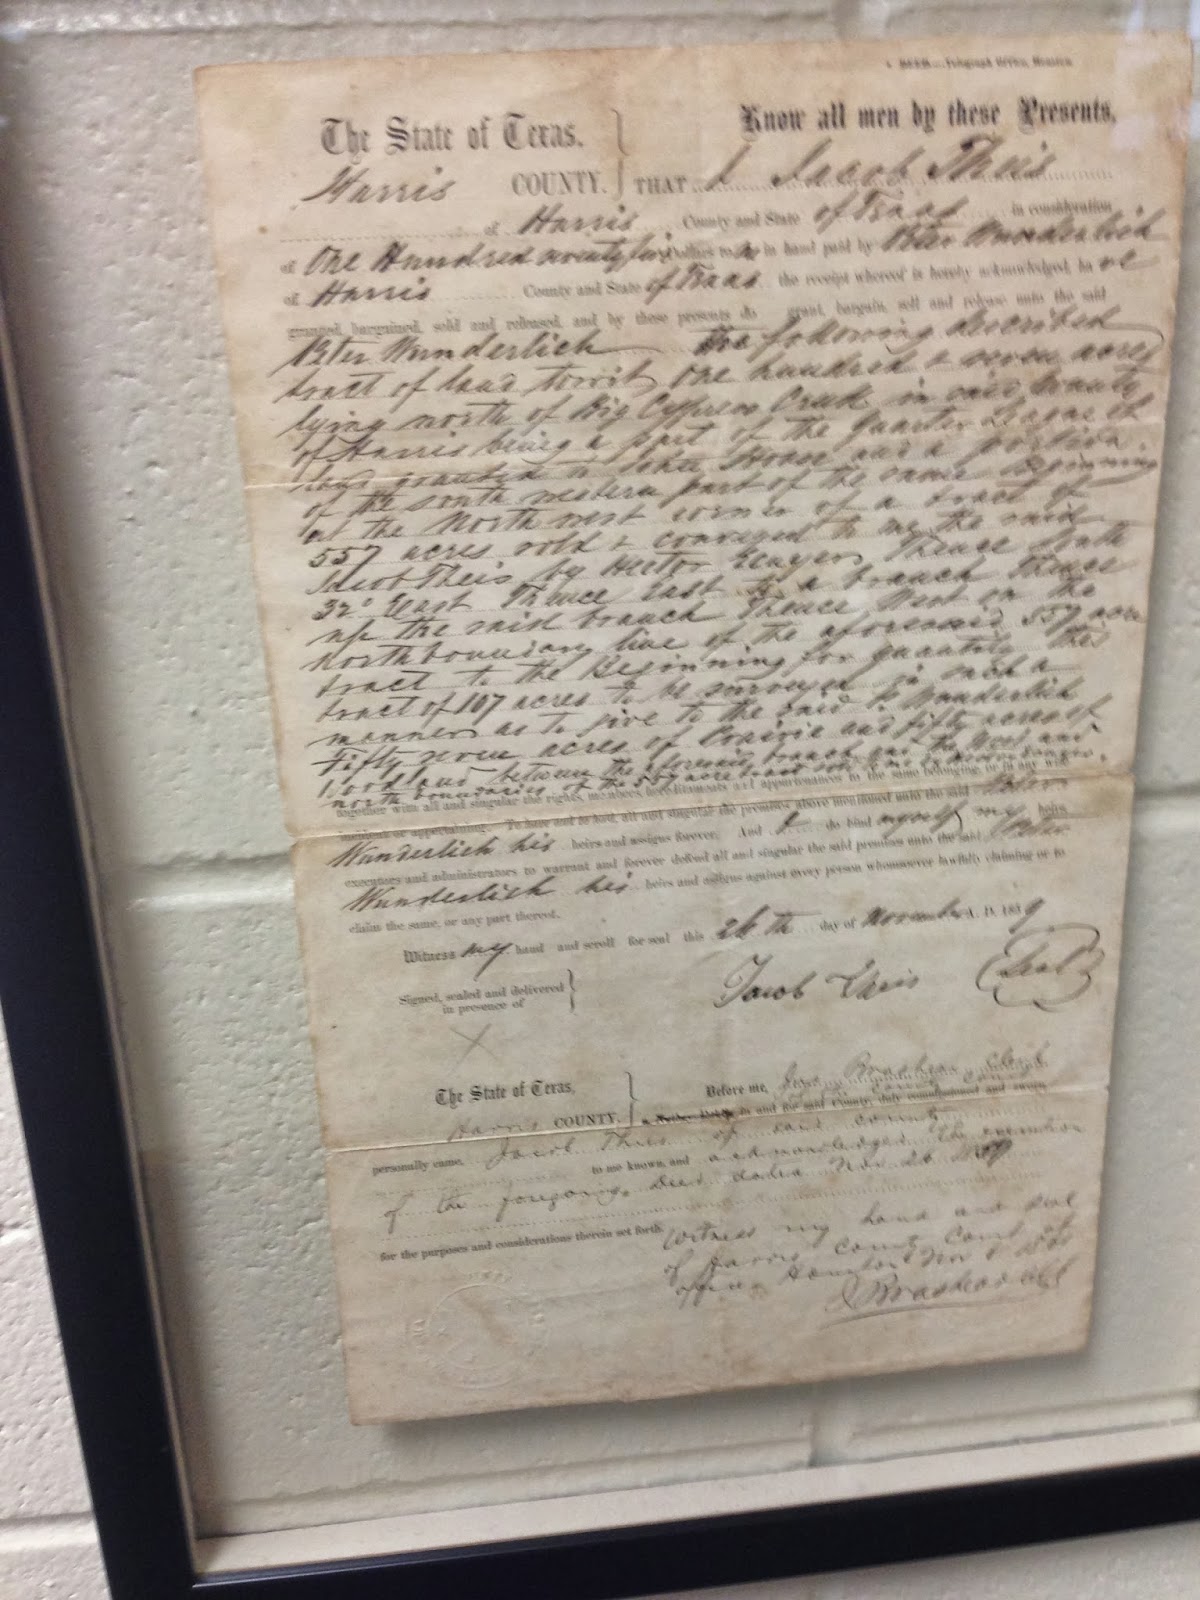 DEED.—Telegraph Office, Houston
The State of Texas, Know all men by these Presents,
Harris COUNTY. THAT I Jacob Theis
of Harris County and State of Texas in consideration
of One Hundred twenty five Dollars to me in hand paid by Peter Wunderlich
of Harris County and State of Texas the receipt whereof is hereby acknowledged, have
granted, bargained, sold and released, and by these presents do grant, bargain, sell and release unto the said
Peter Wunderlich the following described
tract of land towit One hundred & seven acres
lying north of Big Cypress Creek in said County
of Harris being a part of the quarter League of
land granted to House and a portion
of the south western part of the same Beginning
at the North west corner of a tract of
557 acres sold & conveyed to me the said
Jacob Theis by Hector Thence South
32° East Thence East to a branch Thence
up the said branch Thence West on the
north boundary line of the aforesaid 557 acre
tract to the Beginning for quantity this
tract of 107 acres to be surveyed in such a
manner as to give to the said P. Wunderlich
Fifty seven acres of Prairie and fifty acres of
Woodland between the aforesaid branch and the West and
north boundaries of the 557 acre tract
together with all and singular the rights, members, hereditaments and appurtenances to the same belonging, or in any wise
incident or appertaining. To have and to hold, all and singular the premises above mentioned unto the said Peter
Wunderlich his heirs and assigns forever. And I do bind myself, my heirs
executors and administrators to warrant and forever defend all and singular the said premises unto the said Peter
Wunderlich his heirs and assigns against every person whomsoever lawfully claiming or to
claim the same, or any part thereof.
Witness my hand and scroll for seal this 26th day of November A. D. 1859
Signed, sealed and delivered Jacob Theis Seal
in presence of
X
The State of Texas, Before me, Brashear Clerk
Harris COUNTY. in and for said County, duly commissioned and sworn,
personally came, Jacob Theis of said county
to me known, and acknowledged the execution
of the foregoing Deed dated Nov 26 1859
for the purposes and considerations therein set forth. Witness my hand and seal
of Harris County Court at
office Houston Nov
J Brashear Clk